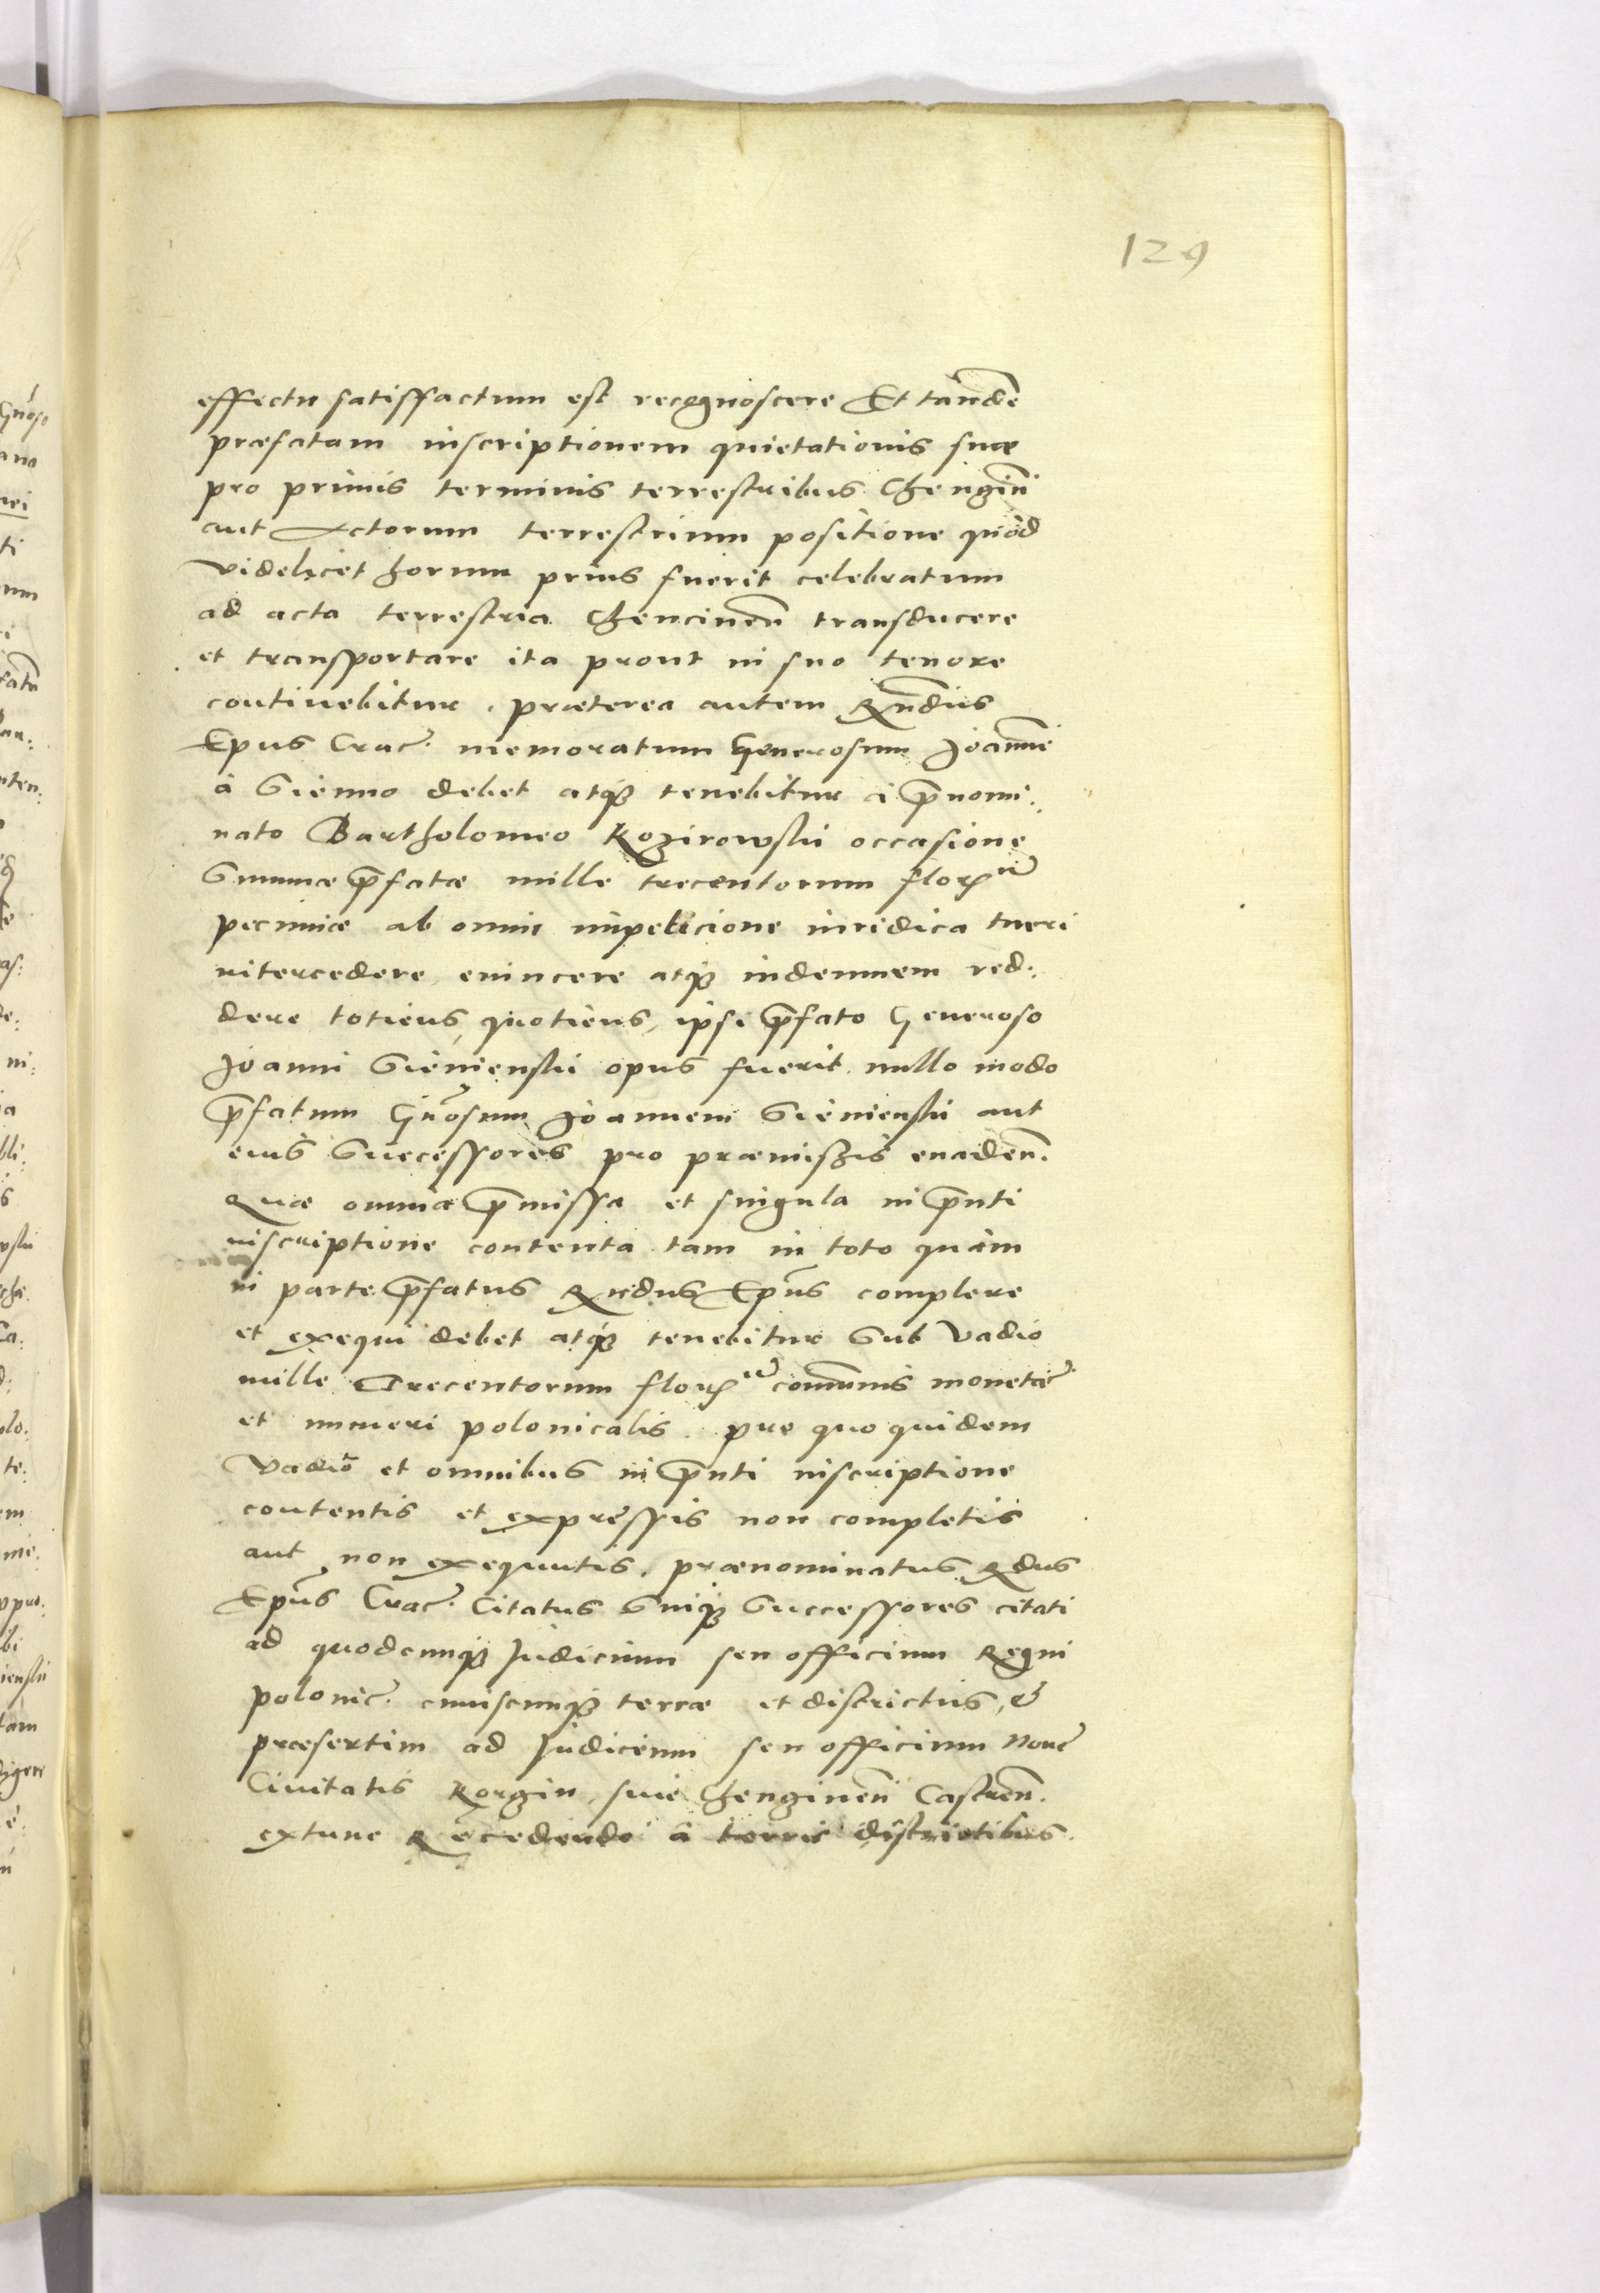 129
effectu satissfactum est recognoscere Et tandē
præfatam inscriptionem quietationis suæ
pro primis terminis terrestribus Chenginń
aut Actorum terrestrium positione quòd
videlicet horum prius fuerit celebratum
ad acta terrestria Chencineñ transducere
et transportare ita prout in suo tenore
continebitur. præterea autem Rñdus
Epus Crac. memoratum Generosum Joannē
à Sienno debet atq₃ tenebitur à p̄nomi:
nato Bartholomeo Kozirowski occasione
Summæ p̄fatæ mille trecentorum florenorū
pecuniæ ab omni impeticione iuridica tueri
intercedere euincere atq₃ indemnem red:
dere totiens, quotiens, ipsi p̄fato Generoso
Joanni Sienienski opus fuerit. nullo modo
p̄fatum Gñosum Joannem Sienienski aut
eius Successores pro præmissis euadeñ.
Quæ omnia p̄missa et singula in p̄nti
inscriptione contenta tam in toto quàm
in parte p̄fatus Rndus Epūs complere
et exequi debet atq₃ tenebitur Sub Vadio
mille Trecentorum florenorū com̄unis monetæ
et numeri polonicalis. pre quo quidem
Vadio et omnibus in p̄nti inscriptione
contentis et expressis non completis
aut non exequutis. prænominatus Rdus
Epūs Crac. Citatus Suiq₃ Successores citati
ad quodcunq₃ Judicium seu officium Regni
polonie. cuiuscunq₃ terræ et districtus, &
præsertim ad Judicium seu officium Nouæ
Ciuitatis Korgin, siue Chengineñ Castreñ.
extunc Recedendo à terris districtibus